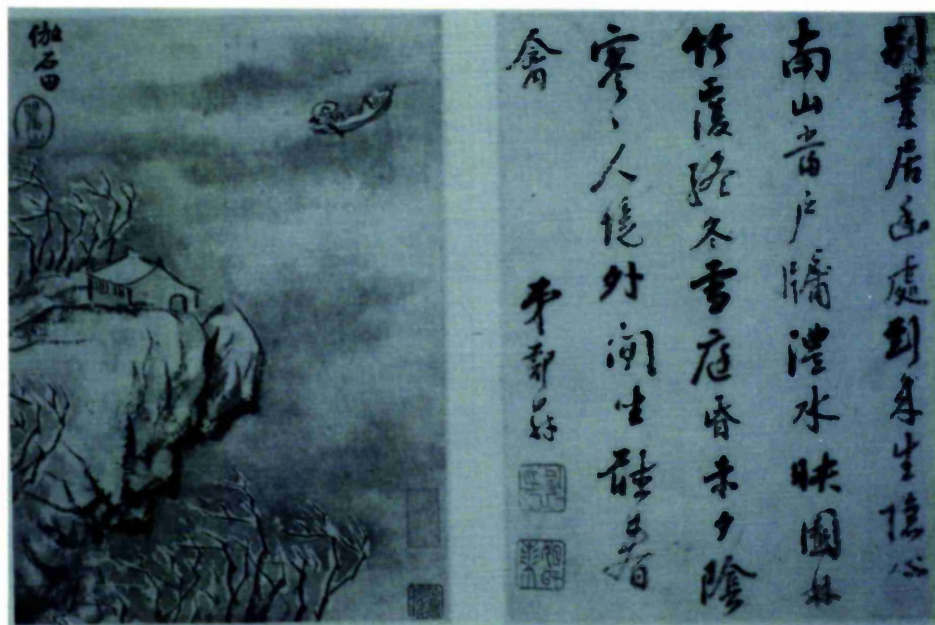 別業居幽處到來生隱心
南山當戶牖澧水映園林
竹覆經冬雪庭昏未夕陰
寥〻人境外閒坐聽春
禽
弟鄭
倣石田